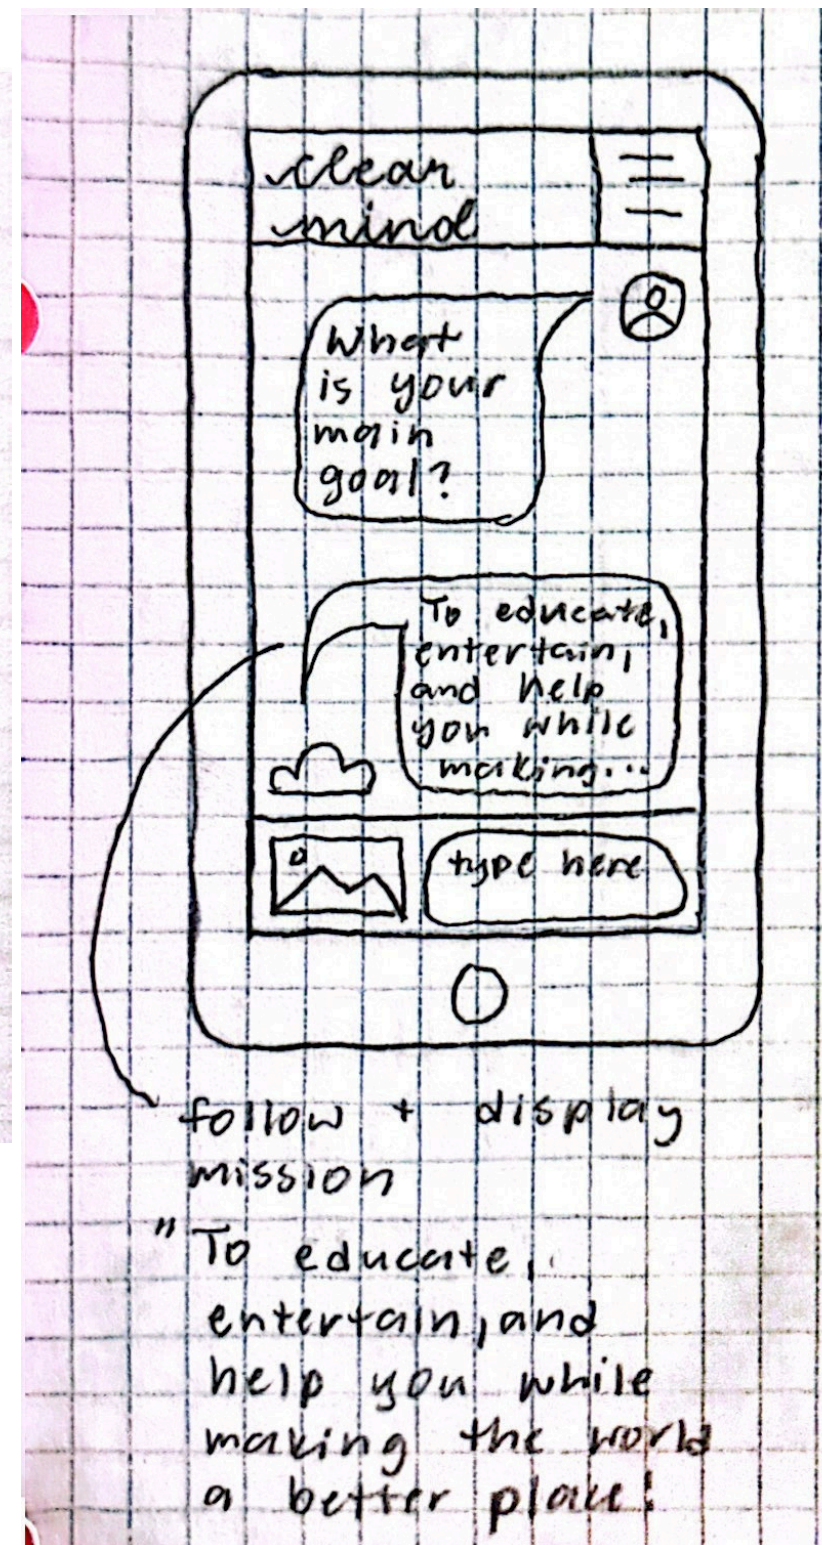 clear
mind
What
is your
main
goal?
To educate,
entertain,
and help
you while
making...
type here
follow + display
mission
" To educate,
entertain, and
help you while
making the world
a better place!